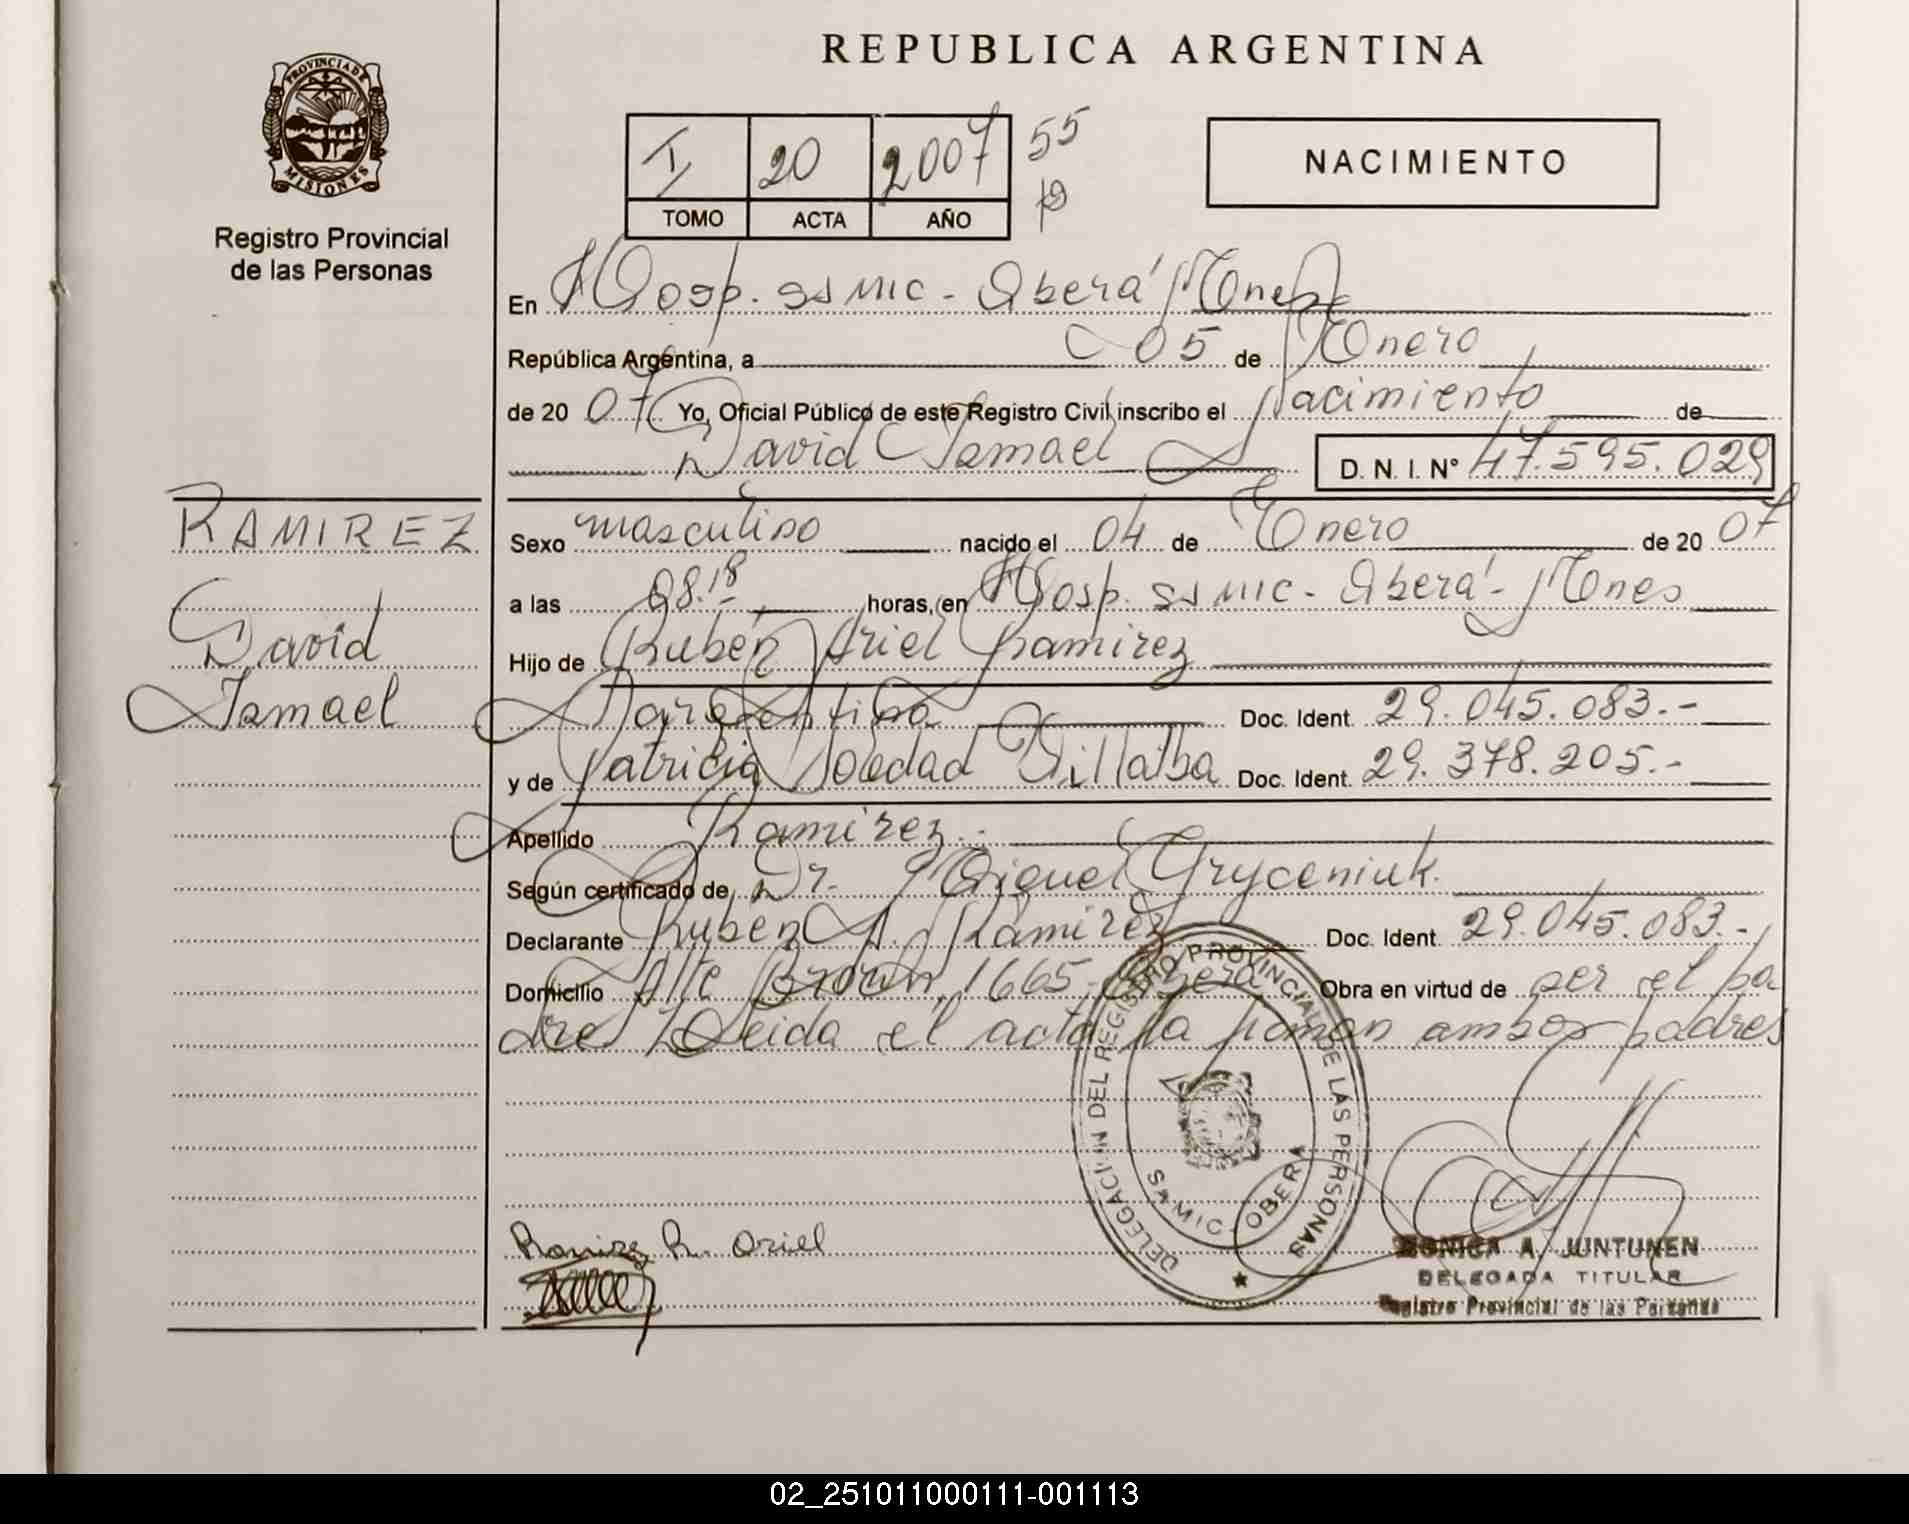 REPUBLICA ARGENTINA
PROVINCIA DE
MISIONES
Registro Provincial
de las Personas
I 20 2007 55
TOMO ACTA AÑO
NACIMIENTO
En Hosp. SAMIC - Oberá Mnes
República Argentina, a 05 de Enero
de 20 07 Yo, Oficial Público de este Registro Civil inscribo el Nacimiento de
David Ismael D. N. I. N° 47.595.029
RAMIREZ
David
Ismael
Sexo masculino nacido el 04 de Enero de 20 07
a las 08.18 horas, en Hosp. SAMIC - Oberá - Mnes
Hijo de Rubén Ariel Ramirez
Argentina Doc. Ident. 29.045.083.-
y de Patricia Soledad Villalba Doc. Ident. 29.378.205.-
Apellido Ramirez.-
Según certificado de Dr. Miguel Gryceniuk.
Declarante Ruben A. Ramirez Doc. Ident. 29.045.083.-
Domicilio Alte Brown 1665 - Oberá Obra en virtud de ser el pa
dre Leida el acta la firman ambos padres
DELEGACION DEL REGISTRO PROVINCIAL DE LAS PERSONAS
SAMIC - OBERA
Ramirez R. Ariel
MONICA A. JUNTUNEN
DELEGADA TITULAR
Registro Provincial de las Personas
02_251011000111-001113